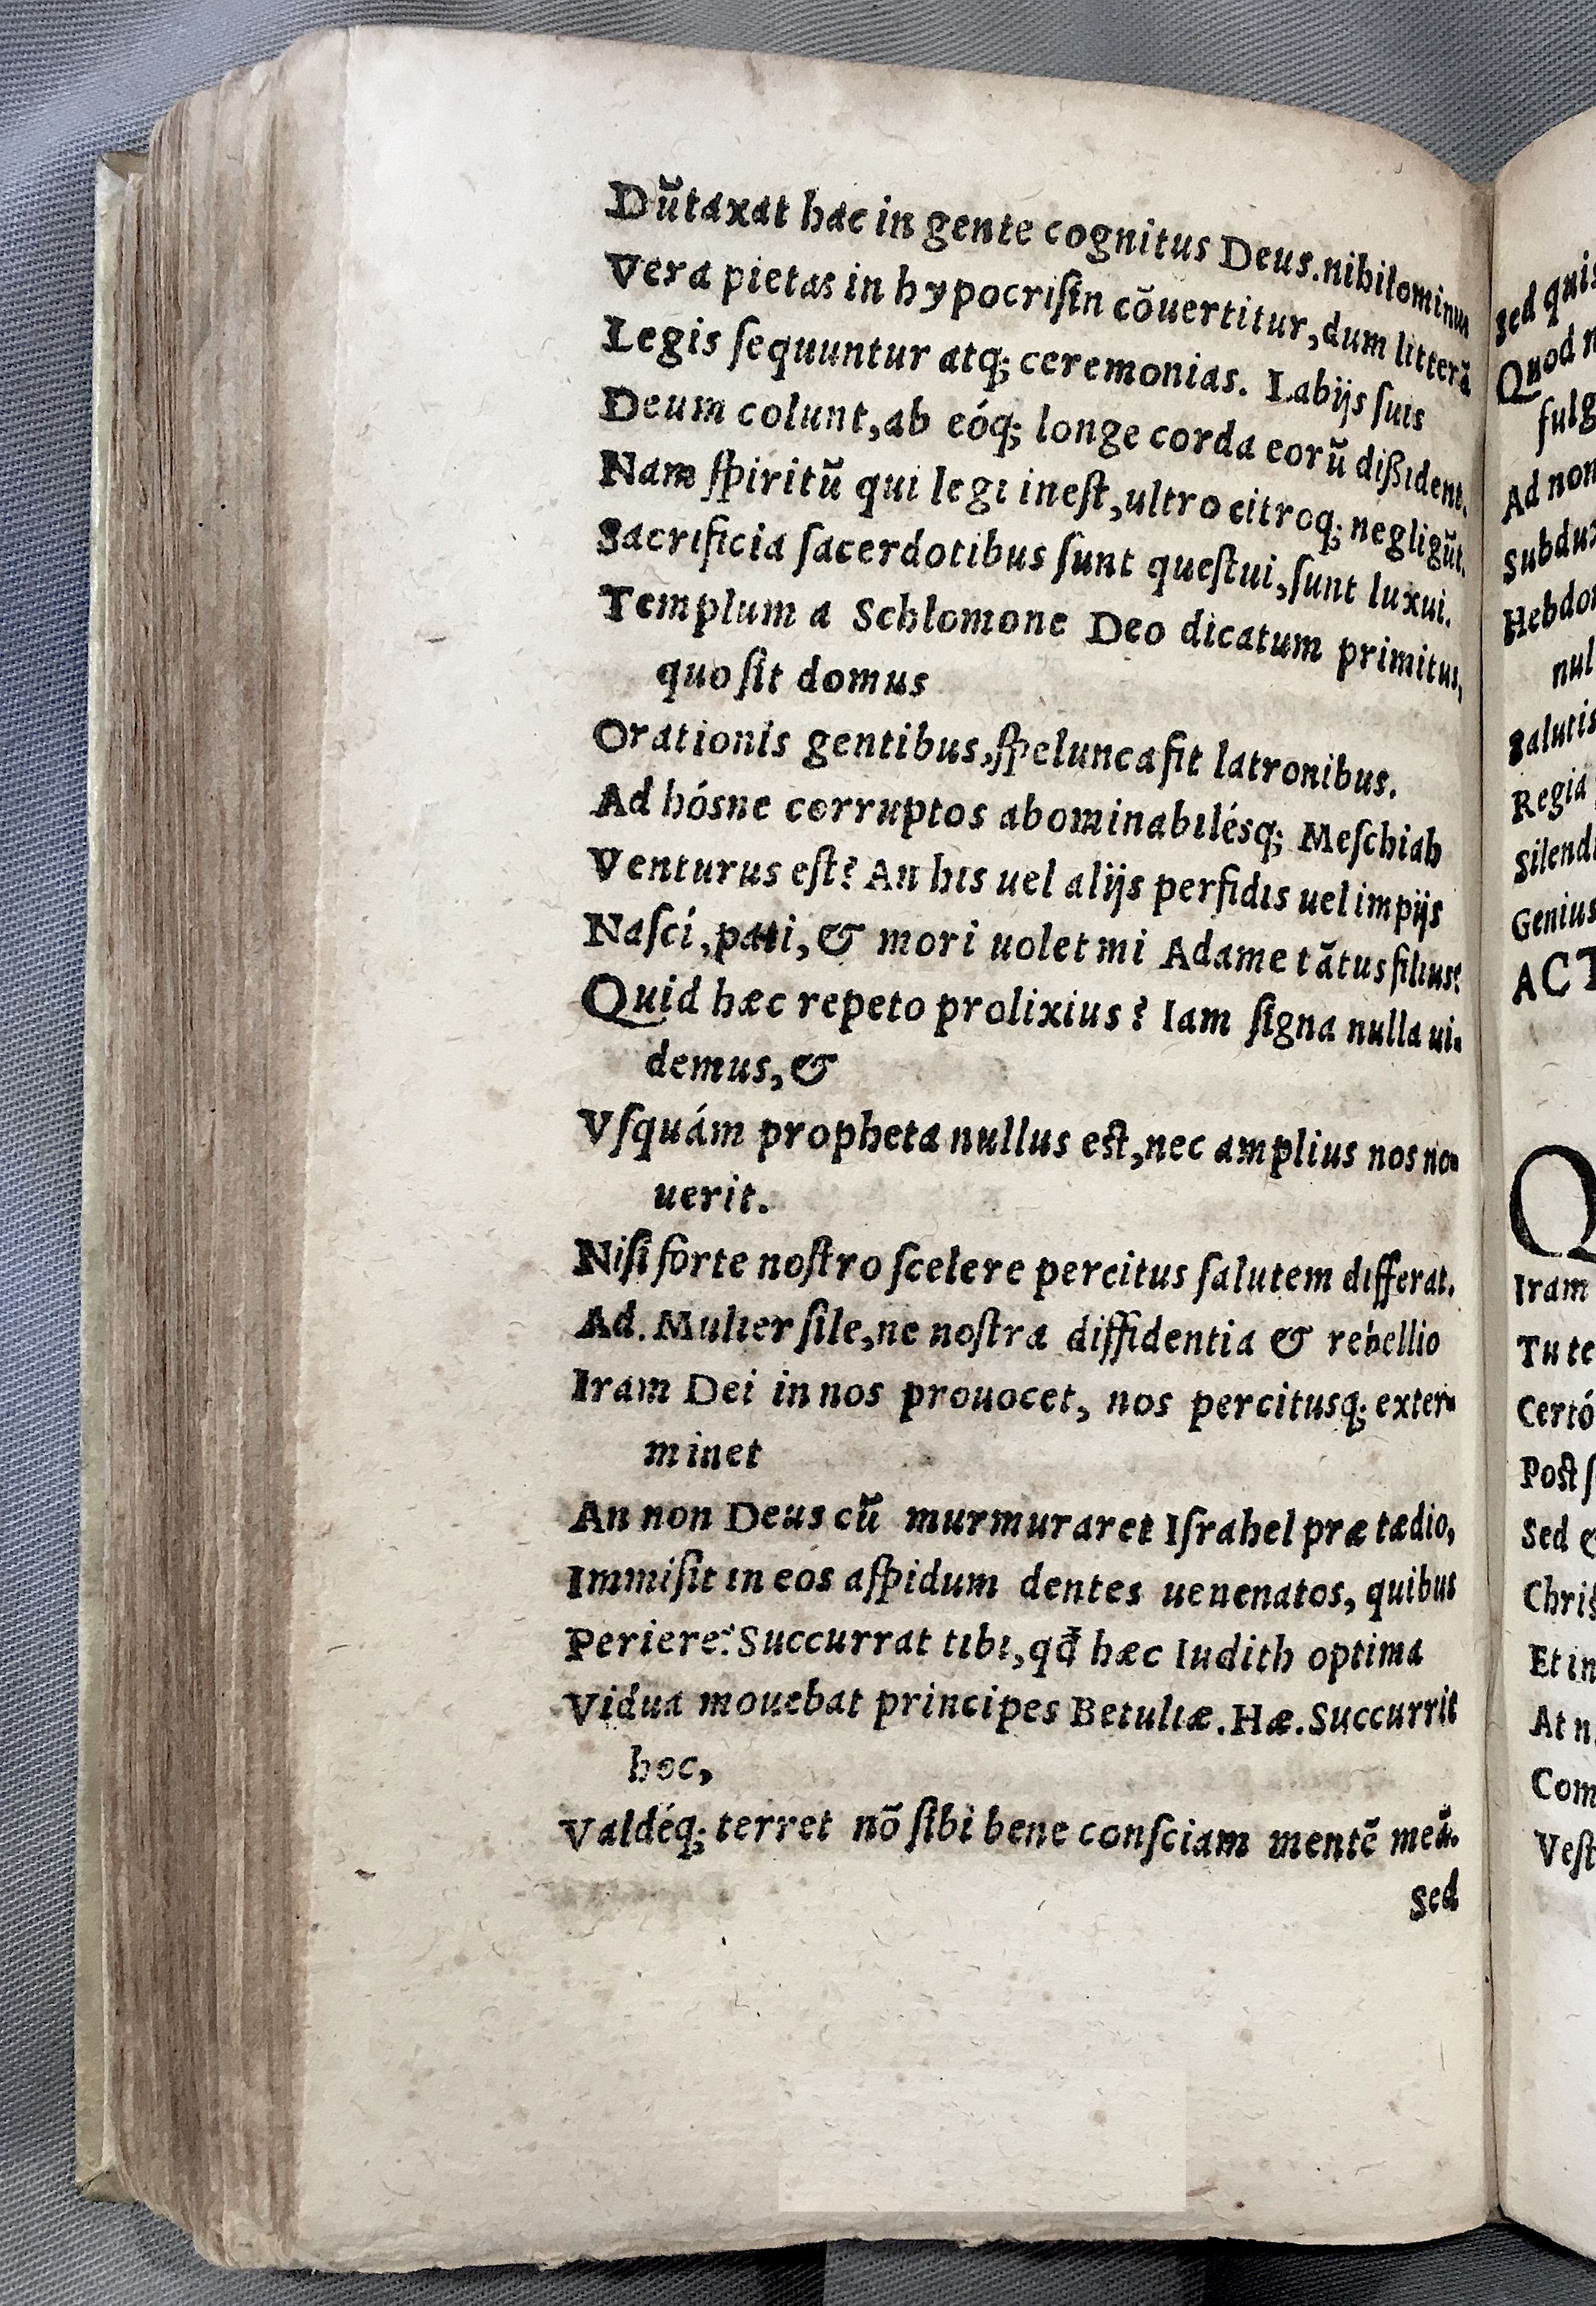 Dũtaxat hac in gente cognitus Deus.nihilominus
Vera pietas in hypocriſin cõuertitur,dum litterã
Legis ſequuntur atq; ceremonias. Labijs ſuis
Deum colunt,ab eóq; longe corda eorũ diſsident.
Nam ſpiritũ qui legi ineſt,ultro citroq; negligũt.
Sacrificia ſacerdotibus ſunt queſtui,ſunt luxui.
Templum a Schlomone Deo dicatum primitus,
quo ſit domus
Orationis gentibus,ſpelunca fit latronibus.
Ad hósne corruptos abominabilésq; Meſchiah
Venturus eſt? An his uel alijs perfidis uel impijs
Naſci,pati,& mori uolet mi Adame tãtus filius?
Quid hæc repeto prolixius? Iam ſigna nulla ui-
demus,&
Vſquám propheta nullus eſt,nec amplius nos no-
uerit.
Niſi forte noſtro ſcelere percitus ſalutem differat.
Ad. Mulier ſile,ne noſtra diffidentia & rebellio
Iram Dei in nos prouocet, nos percitusq; exter-
minet
An non Deus cũ murmuraret Iſrahel præ tædio,
Immiſit in eos aſpidum dentes uenenatos, quibus
Periere? Succurrat tibi,qđ hæc Iudith optima
Vidua mouebat principes Betuliæ.Hæ.Succurrit
hoc,
Valdéq; terret nõ ſibi bene conſciam mentẽ meã.
Sed
Sed quis
Quod
fulg
Ad non
Subdux
Hebdo
nul
Salutis
Regia
Silend
Genius
ACT
Q
Iram
Tu te
Certó
Poſt ſ
Sed
Chriſ
Et in
At n
Com
Veſt